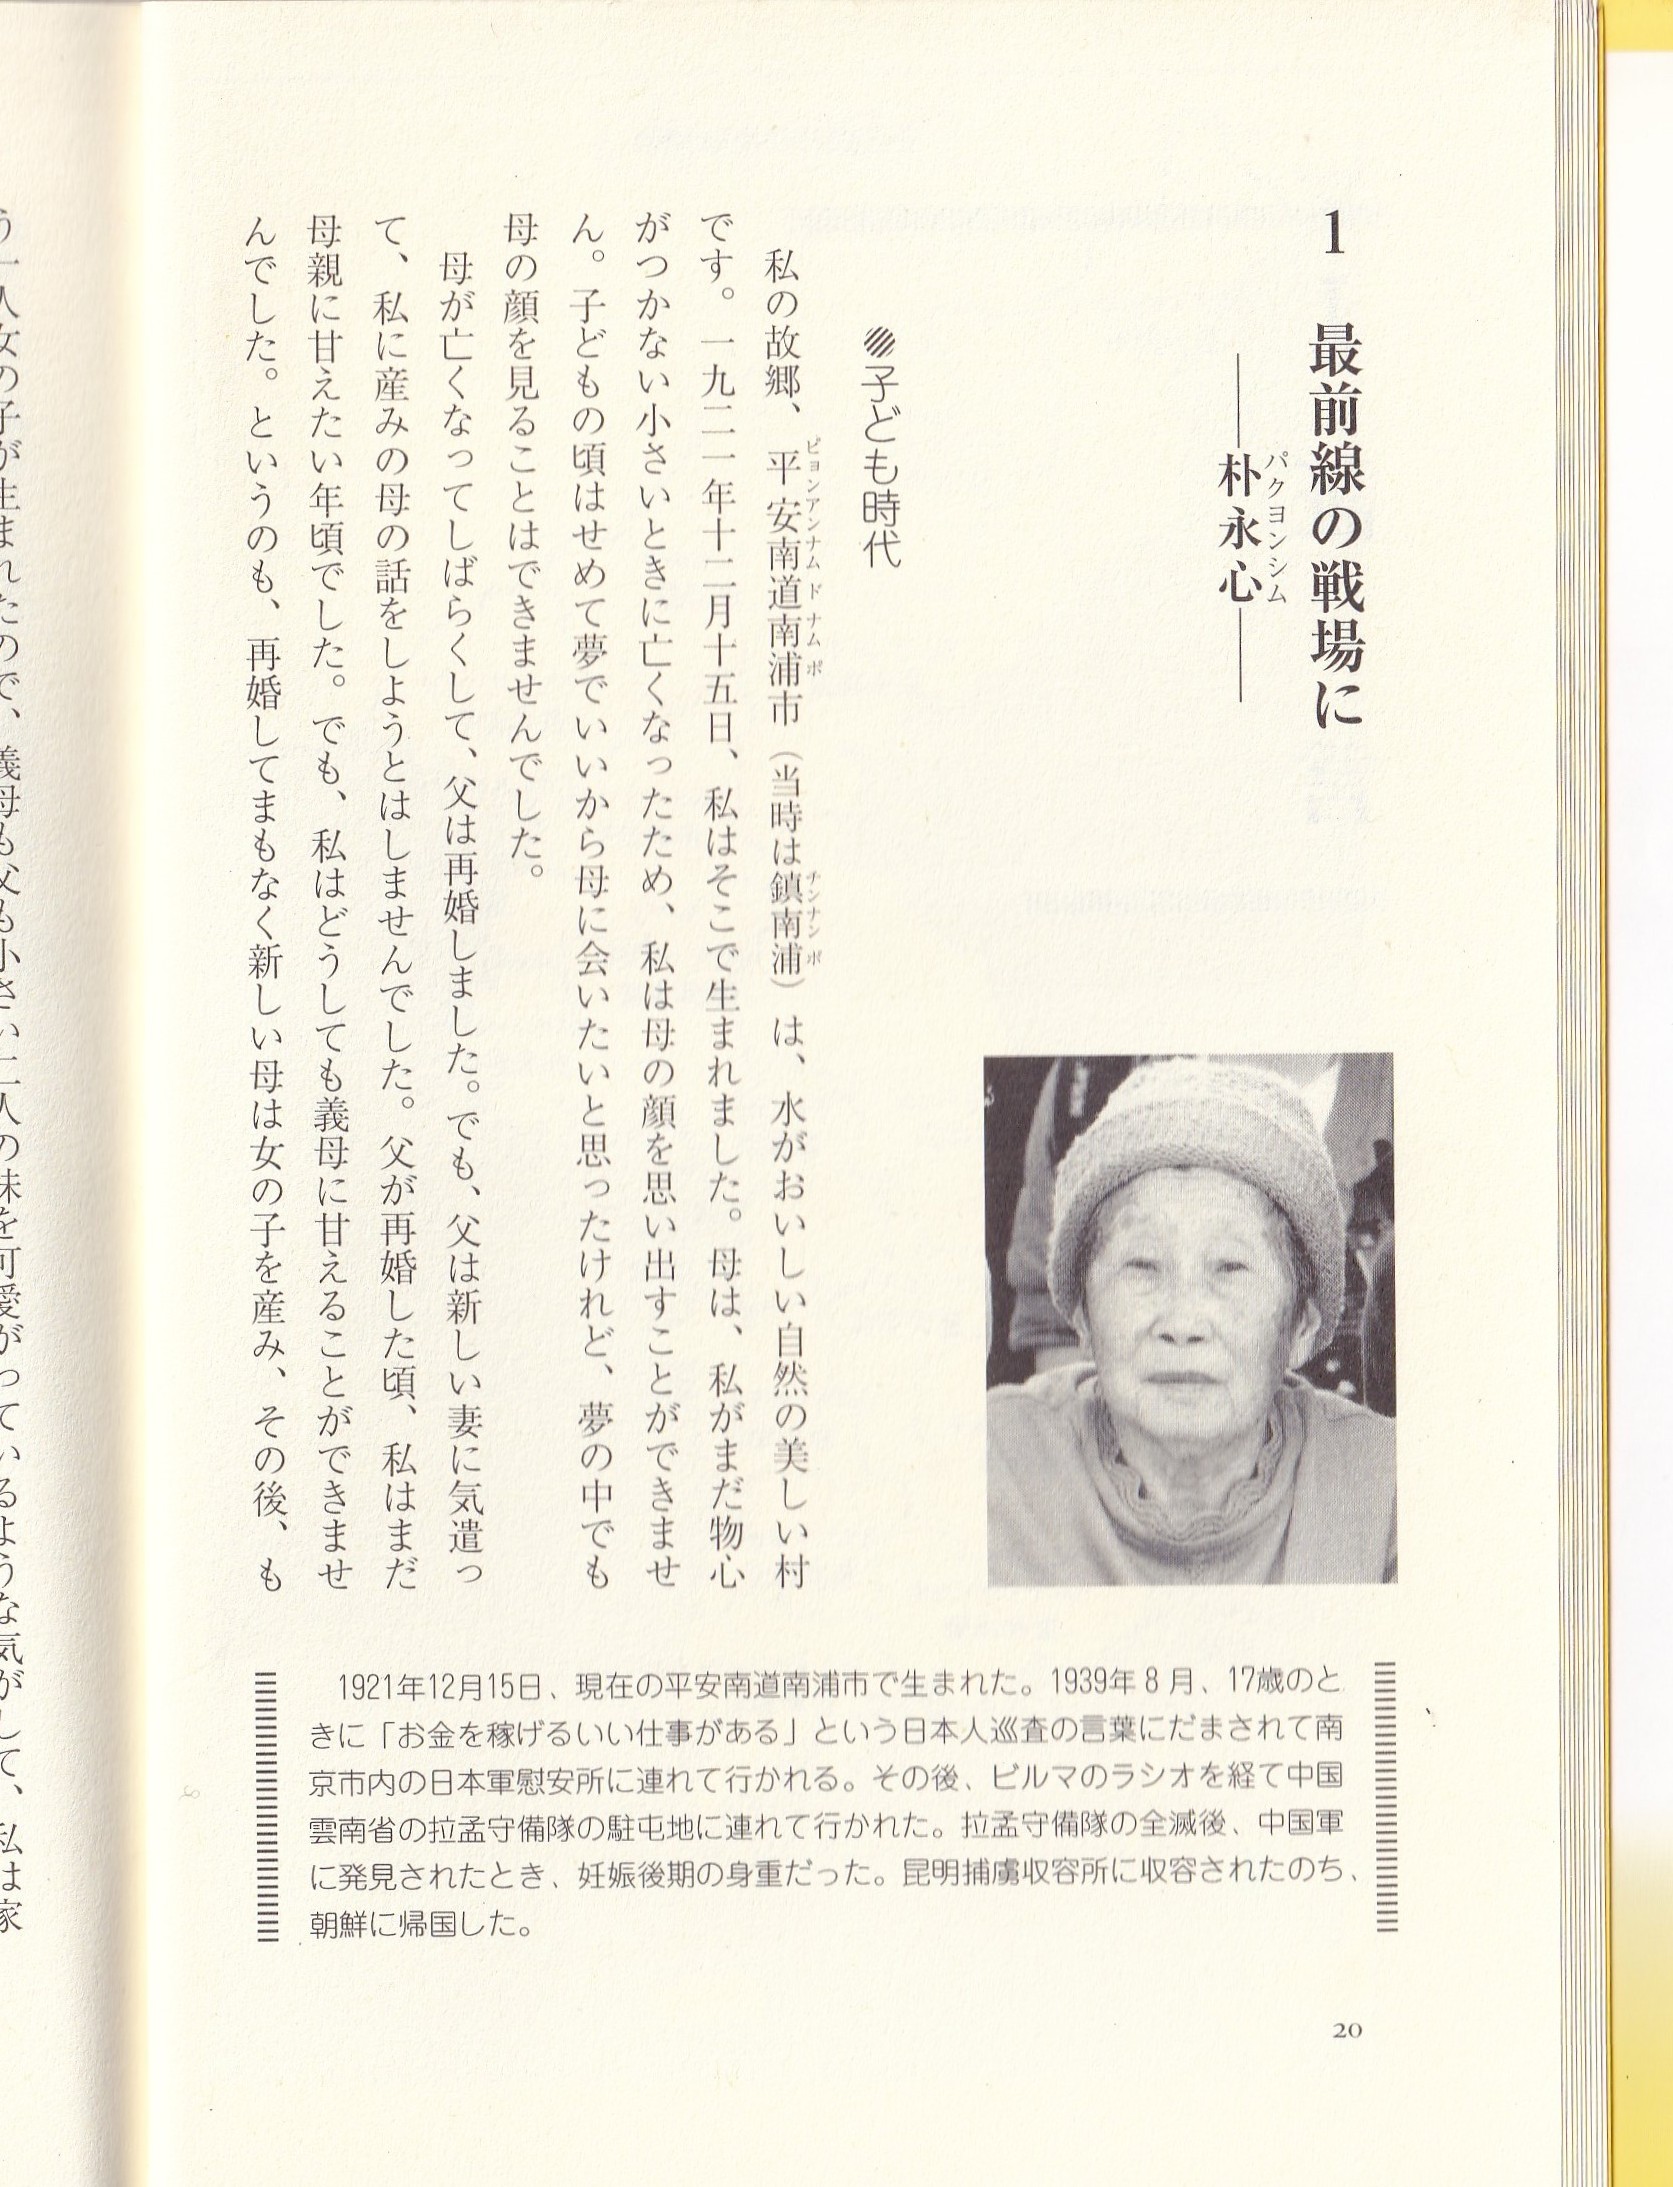 1 最前線の戦場に
パクヨンシム
――朴永心――
●子ども時代
私の故郷、平安南道南浦市（当時は鎮南浦）は、水がおいしい自然の美しい村
ピョンアンナムドナムポ
チンナンポ
です。一九二一年十二月十五日、私はそこで生まれました。母は、私がまだ物心
がつかない小さいときに亡くなったため、私は母の顔を思い出すことができませ
ん。子どもの頃はせめて夢でいいから母に会いたいと思ったけれど、夢の中でも
母の顔を見ることはできませんでした。
母が亡くなってしばらくして、父は再婚しました。でも、父は新しい妻に気遣っ
て、私に産みの母の話をしようとはしませんでした。父が再婚した頃、私はまだ
母親に甘えたい年頃でした。でも、私はどうしても義母に甘えることができませ
んでした。というのも、再婚してまもなく新しい母は女の子を産み、その後、も
う一人女の子が生まれたので、義母も父も小さい二人の妹を可愛がっているような気がして、私は家
1921年12月15日、現在の平安南道南浦市で生まれた。1939年8月、17歳のと
きに「お金を稼げるいい仕事がある」という日本人巡査の言葉にだまされて南
京市内の日本軍慰安所に連れて行かれる。その後、ビルマのラシオを経て中国
雲南省の拉孟守備隊の駐屯地に連れて行かれた。拉孟守備隊の全滅後、中国軍
に発見されたとき、妊娠後期の身重だった。昆明捕虜収容所に収容されたのち、
朝鮮に帰国した。
20